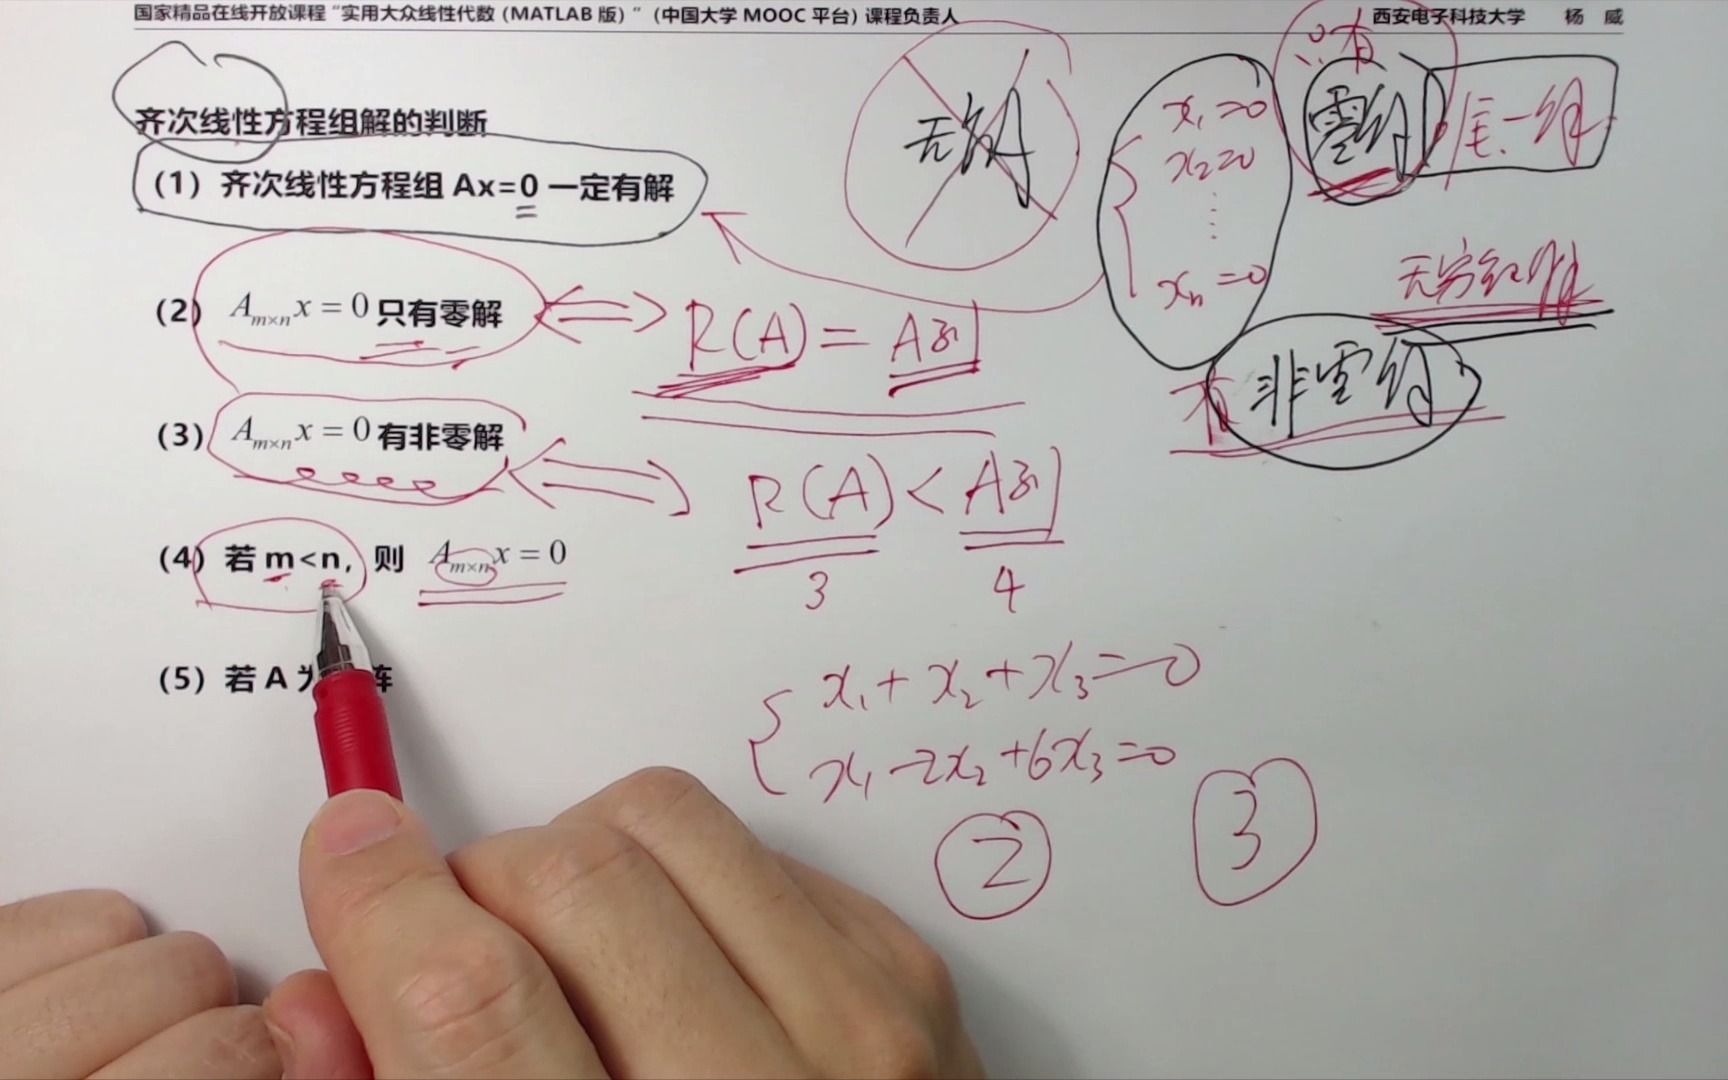 国家精品在线开放课程“实用大众线性代数（MATLAB 版）”（中国大学 MOOC 平台）课程负责人 西安电子科技大学 杨 威
齐次线性方程组解的判断
（1）齐次线性方程组 Ax=0 一定有解
无解
x₁=0
x₂=0
⋮
xₙ=0
只有
零解 唯一解
无穷多解
有 非零解
（2） Aₘ×ₙx = 0 只有零解 ⟺ R(A) = A列
（3） Aₘ×ₙx = 0 有非零解 ⟺ R(A) < A列
3 4
（4）若 m<n，则 Aₘ×ₙx = 0
（5）若 A 阵
x₁ + x₂ + x₃ = 0
x₁ - 2x₂ + 6x₃ = 0
2 3